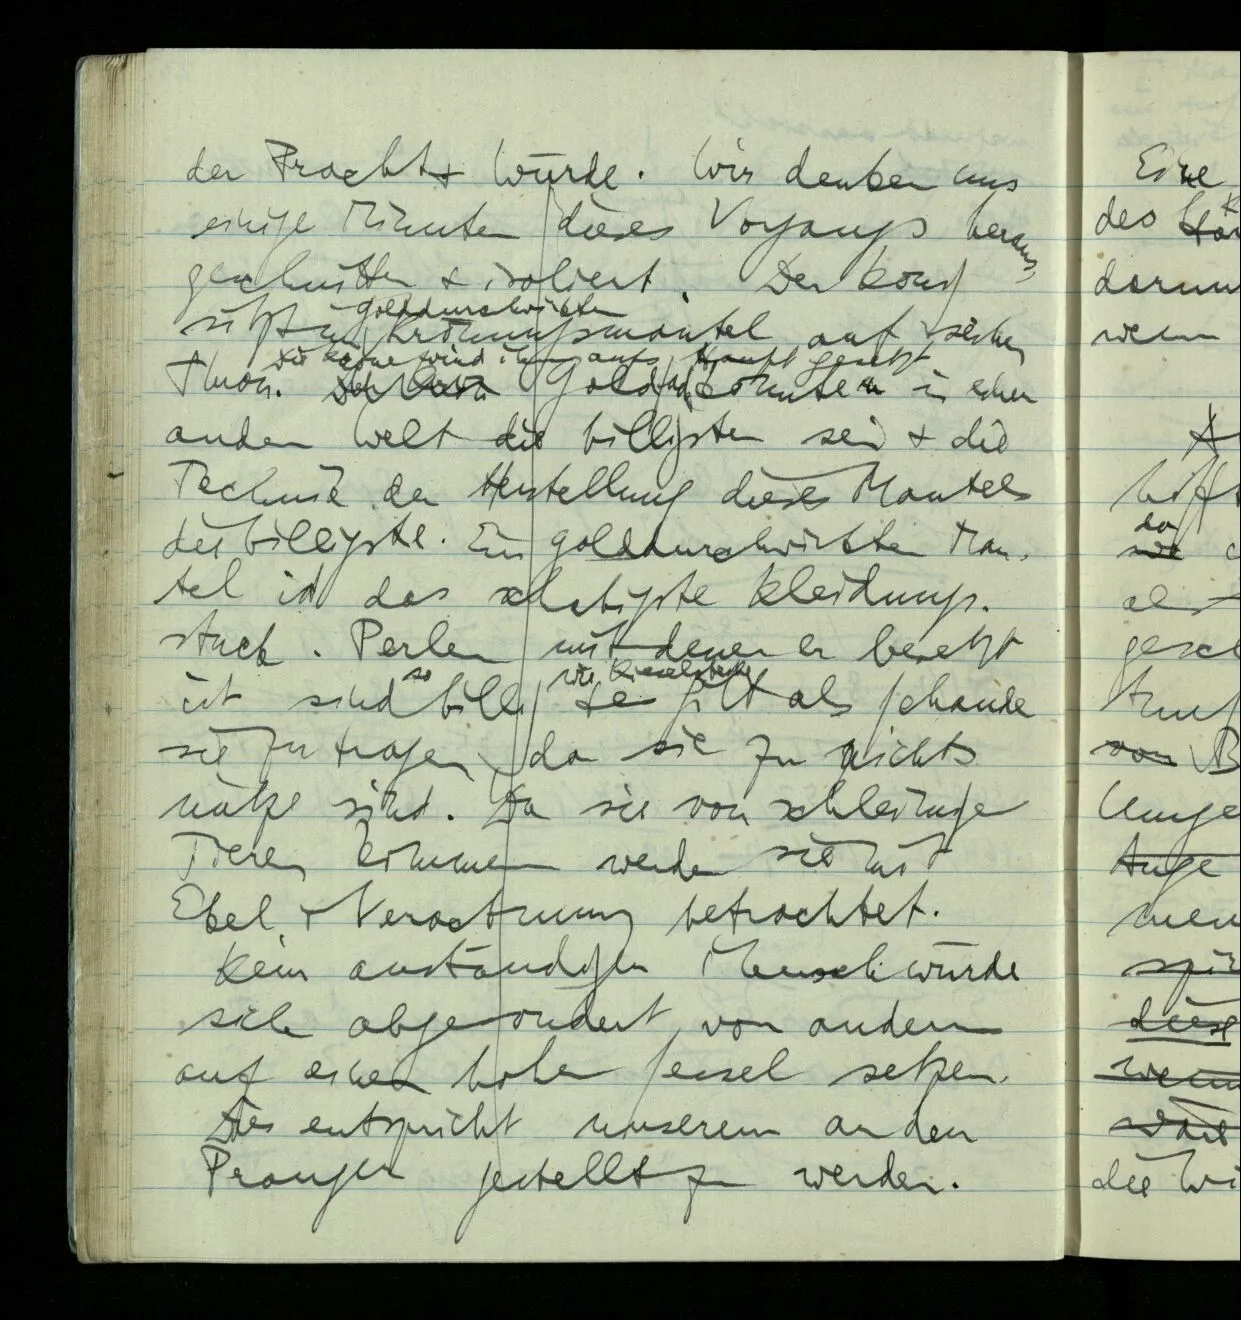 der Pracht & Würde. Wir denken uns
einige Minuten dieses Vorgangs heraus,
geschnitten & isoliert. Der König
golddurchwirkten
sitzt im Krönungsmantel auf seinem
die Krone wird ihm aufs Haupt gesetzt
Thron. Gold könnte in einer
andern Welt die billigsten sein & die
Technik der Herstellung dieses Mantels
die billigste. Ein golddurchwirkter Man-
tel ist das schäbigste Kleidungs-
stück. Perlen mit denen er besetzt
so wie Kieselsteine
ist sind billig es gilt als Schande
sie zu tragen, da sie zu nichts
nütze sind. Da sie von schleimige
Tieren kommen werden sie mit
Ekel & Verachtung betrachtet.
Kein anständiger Mensch würde
sich abgesondert von andern
auf einen hohen Sessel setzen.
Dies entspricht unserem an den
Pranger gestellt zu werden.
Eine
des
darum
wenn
da
die